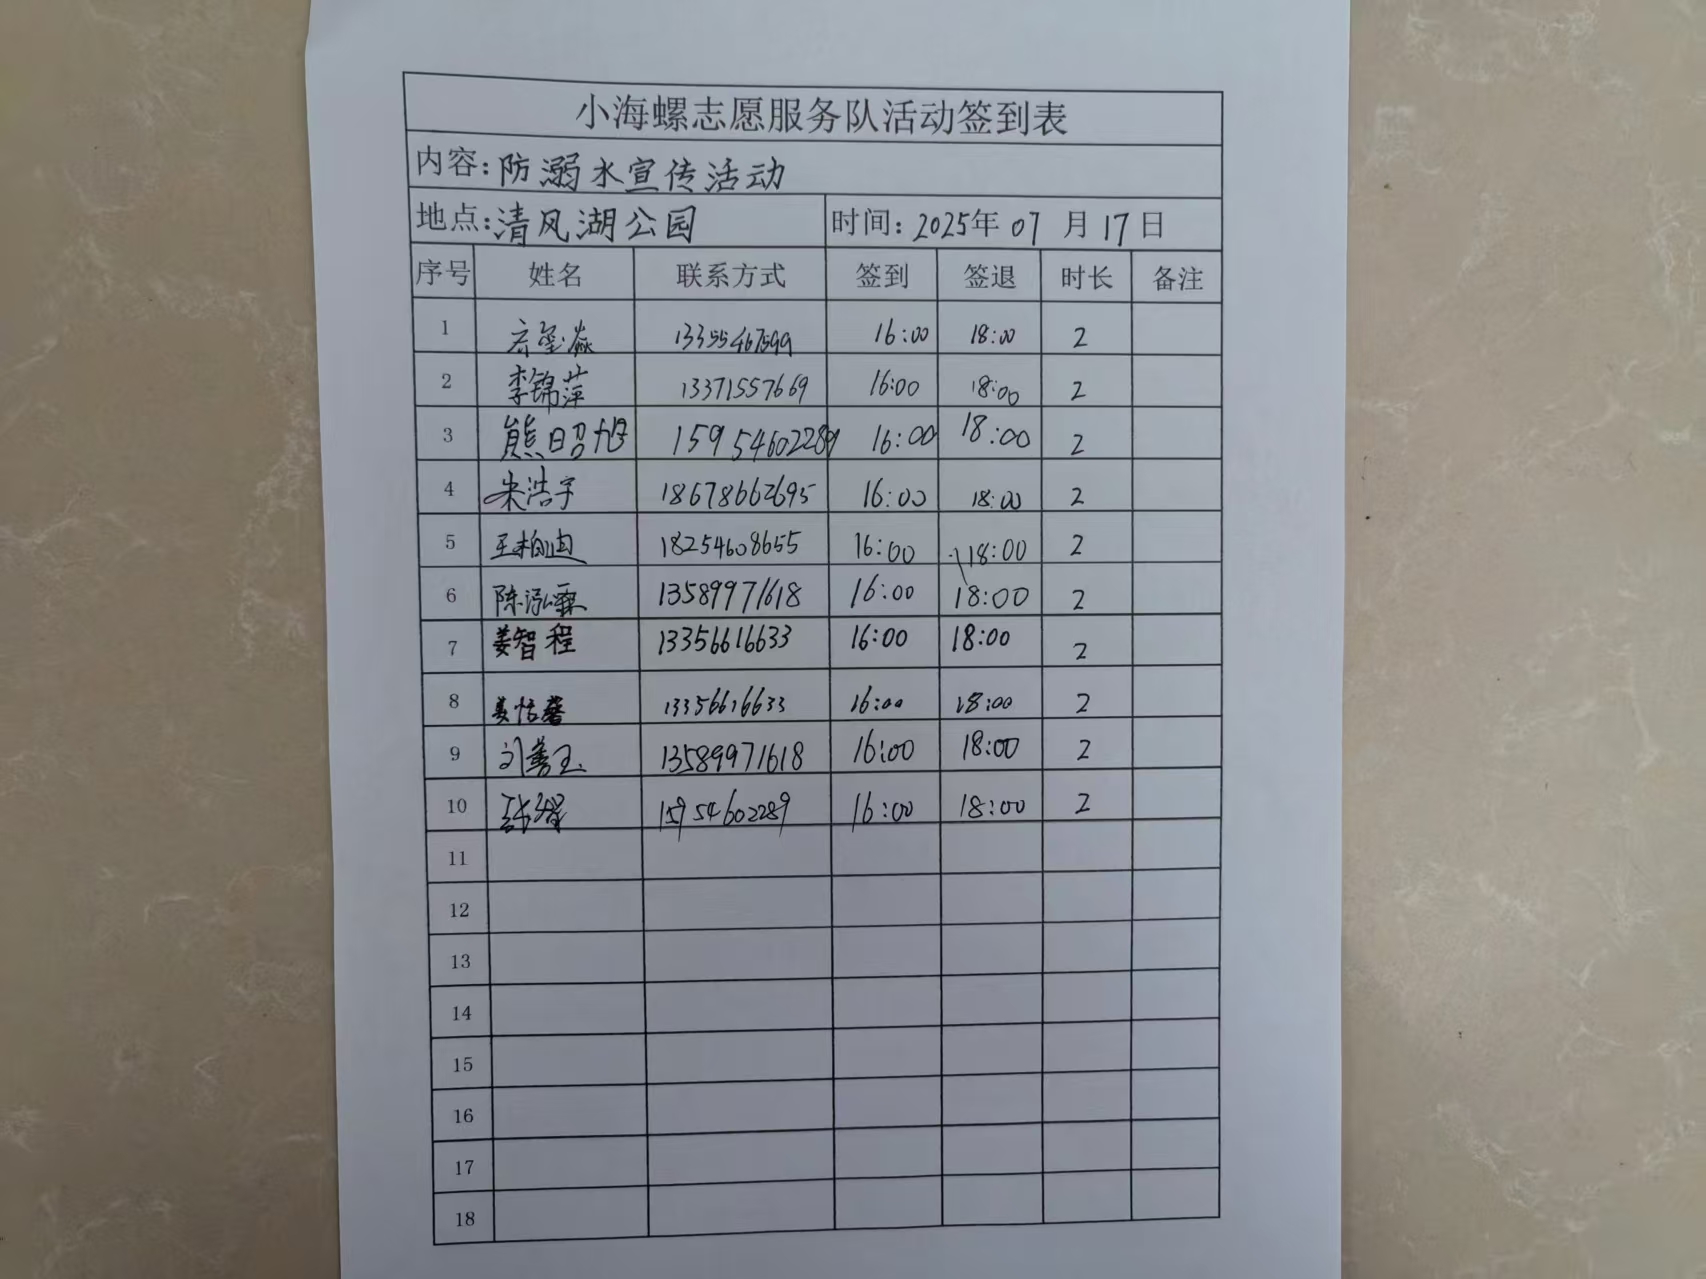 小海螺志愿服务队活动签到表
内容:防溺水宣传活动
地点:清风湖公园 时间:2025年07月17日
序号 姓名 联系方式 签到 签退 时长 备注
1 13355467599 16:00 18:00 2
2 李锦萍 13371557669 16:00 18:00 2
3 熊昭旭 15954602289 16:00 18:00 2
4 朱浩宇 18678662695 16:00 18:00 2
5 王柏迪 18254608655 16:00 18:00 2
6 陈泓霖 13589971618 16:00 18:00 2
7 姜智程 13356616633 16:00 18:00 2
8 姜怡馨 13356616633 16:00 18:00 2
9 刘善玉 13589971618 16:00 18:00 2
10 15954602289 16:00 18:00 2
11
12
13
14
15
16
17
18